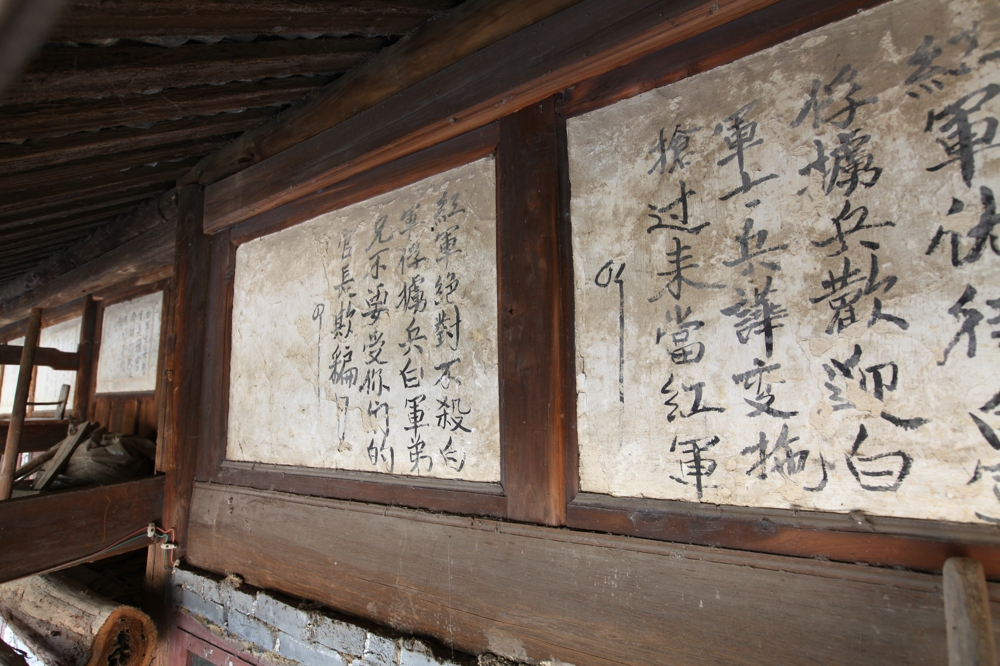 紅軍优待白軍
俘擄兵歡迎白
軍士兵譁变拖
槍过来當紅軍
紅軍絕對不殺白
軍俘擄兵白軍弟
兄不要受你們的
官長欺騙